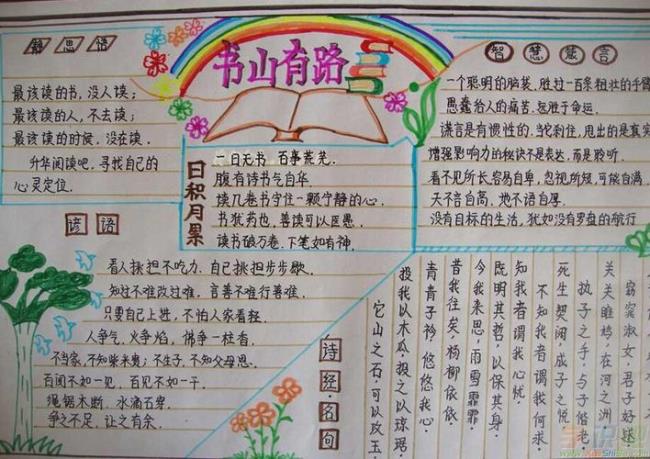 静思语
最该读的书,没人读;
最该读的人,不去读;
最该读的时候,没在读.
升华阅读吧,寻找自己的
心灵定位.
书山有路
智慧箴言
一个聪明的脑袋,胜过一百条粗壮的手臂
愚蠢给人的痛苦,远胜于命运.
谎言是有惯性的,当它刹住,甩出的是真实
增强影响力的秘诀不是表达,而是聆听.
看不见所长,容易自卑,忽视所短,可能自满
天不言自高,地不语自厚.
没有目标的生活,犹如没有罗盘的航行
日积月累
一日无书 百事荒芜.
腹有诗书气自华
读几卷书守住一颗宁静的心.
书犹药也,善读可以医愚.
读书破万卷,下笔如有神.
谚语
看人挑担不吃力,自己挑担步步歇.
知过不难改过难,言善不难行善难.
只要自己上进,不怕人家看轻.
人争气,火争焰,佛争一柱香.
不当家,不知柴米贵;不生子,不知父母恩.
百闻不如一见,百见不如一干.
绳锯木断,水滴石穿.
争之不足,让之有余.
诗经名句
窈窕淑女,君子好逑.
关关雎鸠,在河之洲
执子之手,与子偕老
死生契阔,成子之悦
不知我者谓我何求.
知我者谓我心忧.
既明其哲,以保其身.
今我来思,雨雪霏霏
昔我往矣,杨柳依依.
青青子衿,悠悠我心.
投我以木瓜,报之以琼琚.
它山之石,可以攻玉.